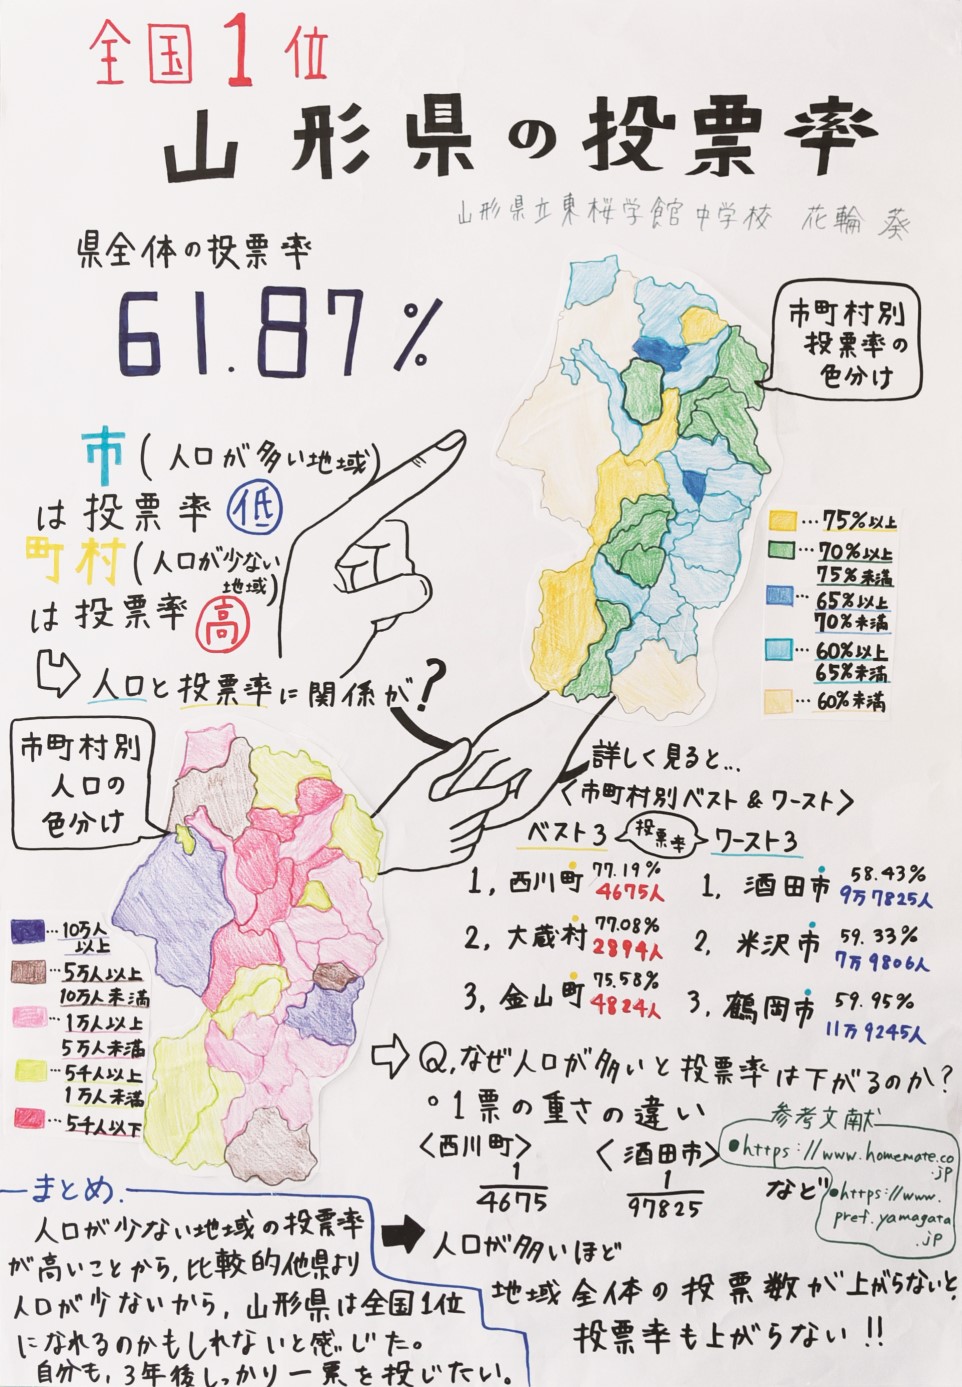 全国1位
山形県の投票率
山形県立東桜学館中学校 花輪 葵
県全体の投票率
61.87%
市町村別
投票率の
色分け
市(人口が多い地域)
は投票率低
町村(人口が少ない
地域)
は投票率高
人口と投票率に関係が?
…75%以上
…70%以上
75%未満
…65%以上
70%未満
…60%以上
65%未満
…60%未満
市町村別
人口の
色分け
…10万人
以上
…5万人以上
10万人未満
…1万人以上
5万人未満
…5千人以上
1万人未満
…5千人以下
詳しく見ると…
〈市町村別ベスト&ワースト〉
ベスト3 投票率 ワースト3
1, 西川町 77.19% 4675人
2, 大蔵村 77.08% 2894人
3, 金山町 75.58% 4824人
1, 酒田市 58.43% 9万7825人
2, 米沢市 59.33% 7万9806人
3, 鶴岡市 59.95% 11万9245人
Q,なぜ人口が多いと投票率は下がるのか?
°1票の重さの違い
〈西川町〉 〈酒田市〉
1/4675 1/97825 など
参考文献
●https://www.homemate.co
.jp
●https://www.
pref.yamagata
.jp
人口が多いほど
地域全体の投票数が上がらないと、
投票率も上がらない!!
まとめ.
人口が少ない地域の投票率
が高いことから,比較的他県より
人口が少ないから,山形県は全国1位
になれるのかもしれないと感じた。
自分も,3年後しっかり一票を投じたい。